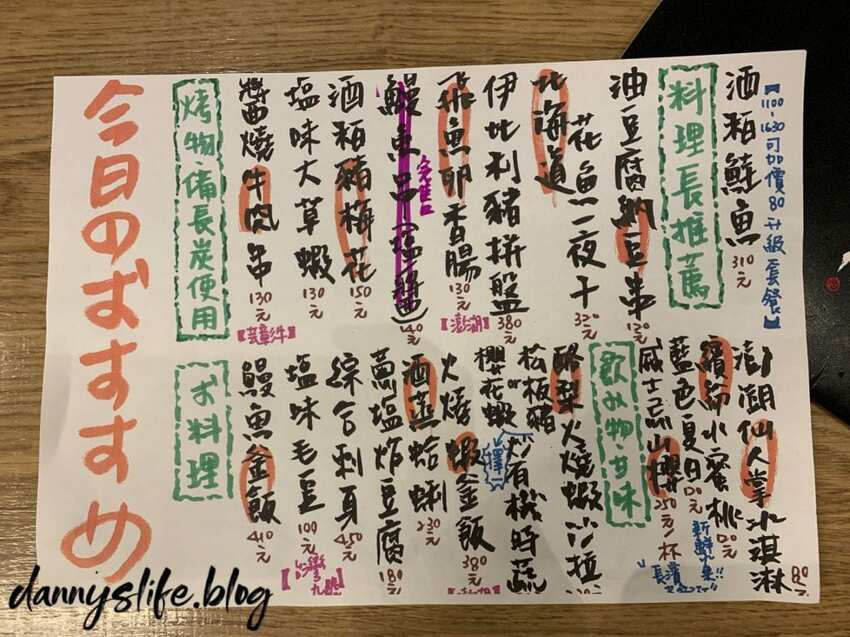 今日のおすすめ
烤物·備長炭使用
醬燒牛肉串 130元
塩味大草蝦 130元
酒粕豬梅花 150元
鰻魚串(塩/醬) 140元
完售
飛魚卵香腸 130元
【澎湖】
伊比利豬拼盤 380元
北海道
花魚一夜干 320元
油豆腐納豆串 120元
料理長推薦
酒粕鮭魚 310元
【1100~1630可加價80升級套餐】
お料理
鰻魚釜飯 410元
塩味毛豆 100元
綜合刺身 450元
蔥塩炸豆腐 180元
酒蒸蛤蜊 230元
火燒蝦釜飯 380元
櫻花蝦
or
松板豬
擇一
炒有機時蔬
酪梨火燒蝦沙拉
飲み物·甘味
威士忌山櫻 250元/杯
藍色夏日 120元
繽紛水蜜桃 120元
新鮮水果!!
澎湖仙人掌冰淇淋 80元
dannyslife.blog